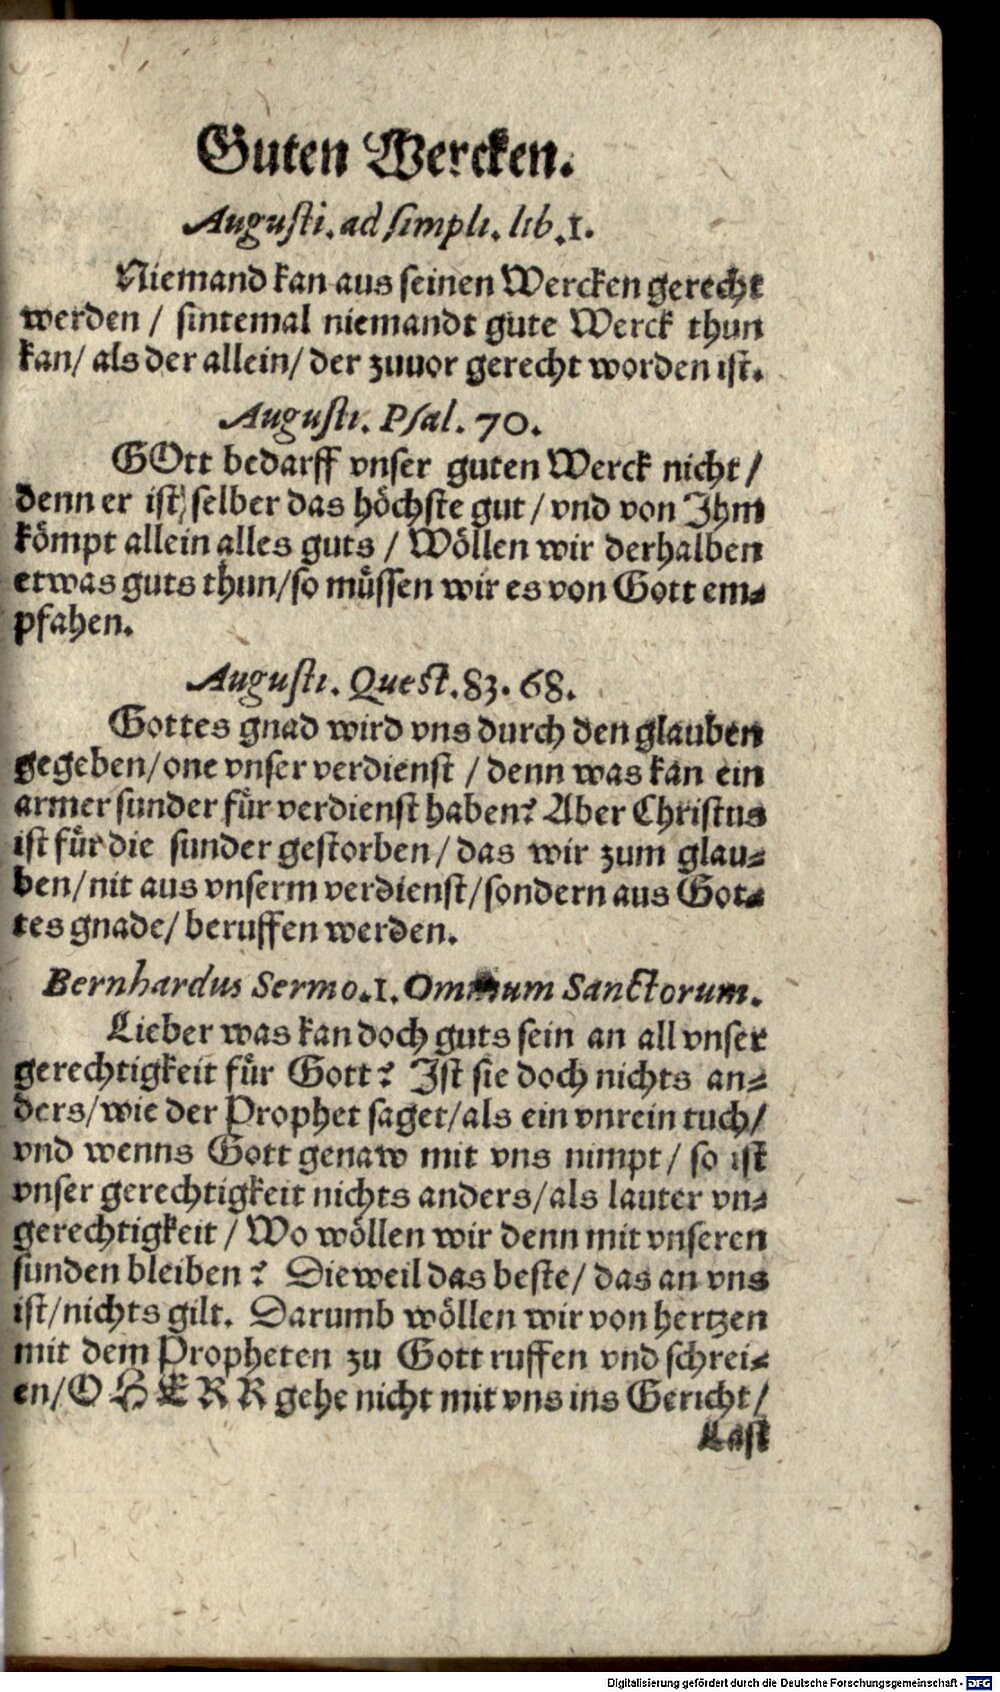 Guten Wercken.
Augusti. ad simpli. lib.1.
Niemand kan aus seinen Wercken gerecht
werden / sintemal niemandt gute Werck thun
kan/ als der allein/ der zuuor gerecht worden ist.
Augusti. Psal. 70.
GOtt bedarff vnser guten Werck nicht /
denn er ist selber das höchste gut / vnd von Ihm
kömpt allein alles guts / Wöllen wir derhalben
etwas guts thun/so müssen wir es von Gott em-
pfahen.
Augusti. Quest.83. 68.
Gottes gnad wird vns durch den glauben
gegeben/one vnser verdienst / denn was kan ein
armer sunder für verdienst haben? Aber Christus
ist für die sunder gestorben/ das wir zum glau-
ben/nit aus vnserm verdienst/sondern aus Got-
tes gnade/ beruffen werden.
Bernhardus Sermo.1. Omnium Sanctorum.
Lieber was kan doch guts sein an all vnser
gerechtigkeit für Gott? Ist sie doch nichts an-
ders/wie der Prophet saget/als ein vnrein tuch/
vnd wenns Gott genaw mit vns nimpt/ so ist
vnser gerechtigkeit nichts anders/als lauter vn-
gerechtigkeit / Wo wöllen wir denn mit vnseren
sunden bleiben? Dieweil das beste/ das an vns
ist/nichts gilt. Darumb wöllen wir von hertzen
mit dem Propheten zu Gott ruffen vnd schrei-
en/O HERR gehe nicht mit vns ins Gericht/
Last
Digitalisierung gefördert durch die Deutsche Forschungsgemeinschaft - DFG